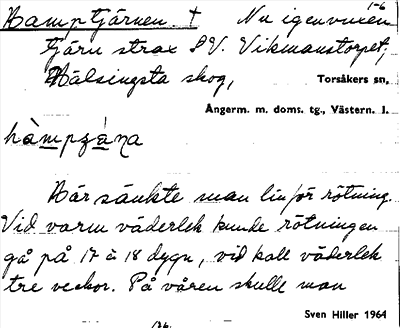 Hamptjärnen † Nu igenvuxen 1-6
tjärn strax S.V. Vikmanstorpet,
Hälsingsta skog, Torsåkers sn.
Ångerm. m. doms. tg., Västern. l.
hàmpȥäna
Här sänkte man lin för rötning.
Vid varm väderlek kunde rötningen
gå på 17 à 18 dygn, vid kall väderlek
tre veckor. På våren skulle man
Sven Hiller 1964